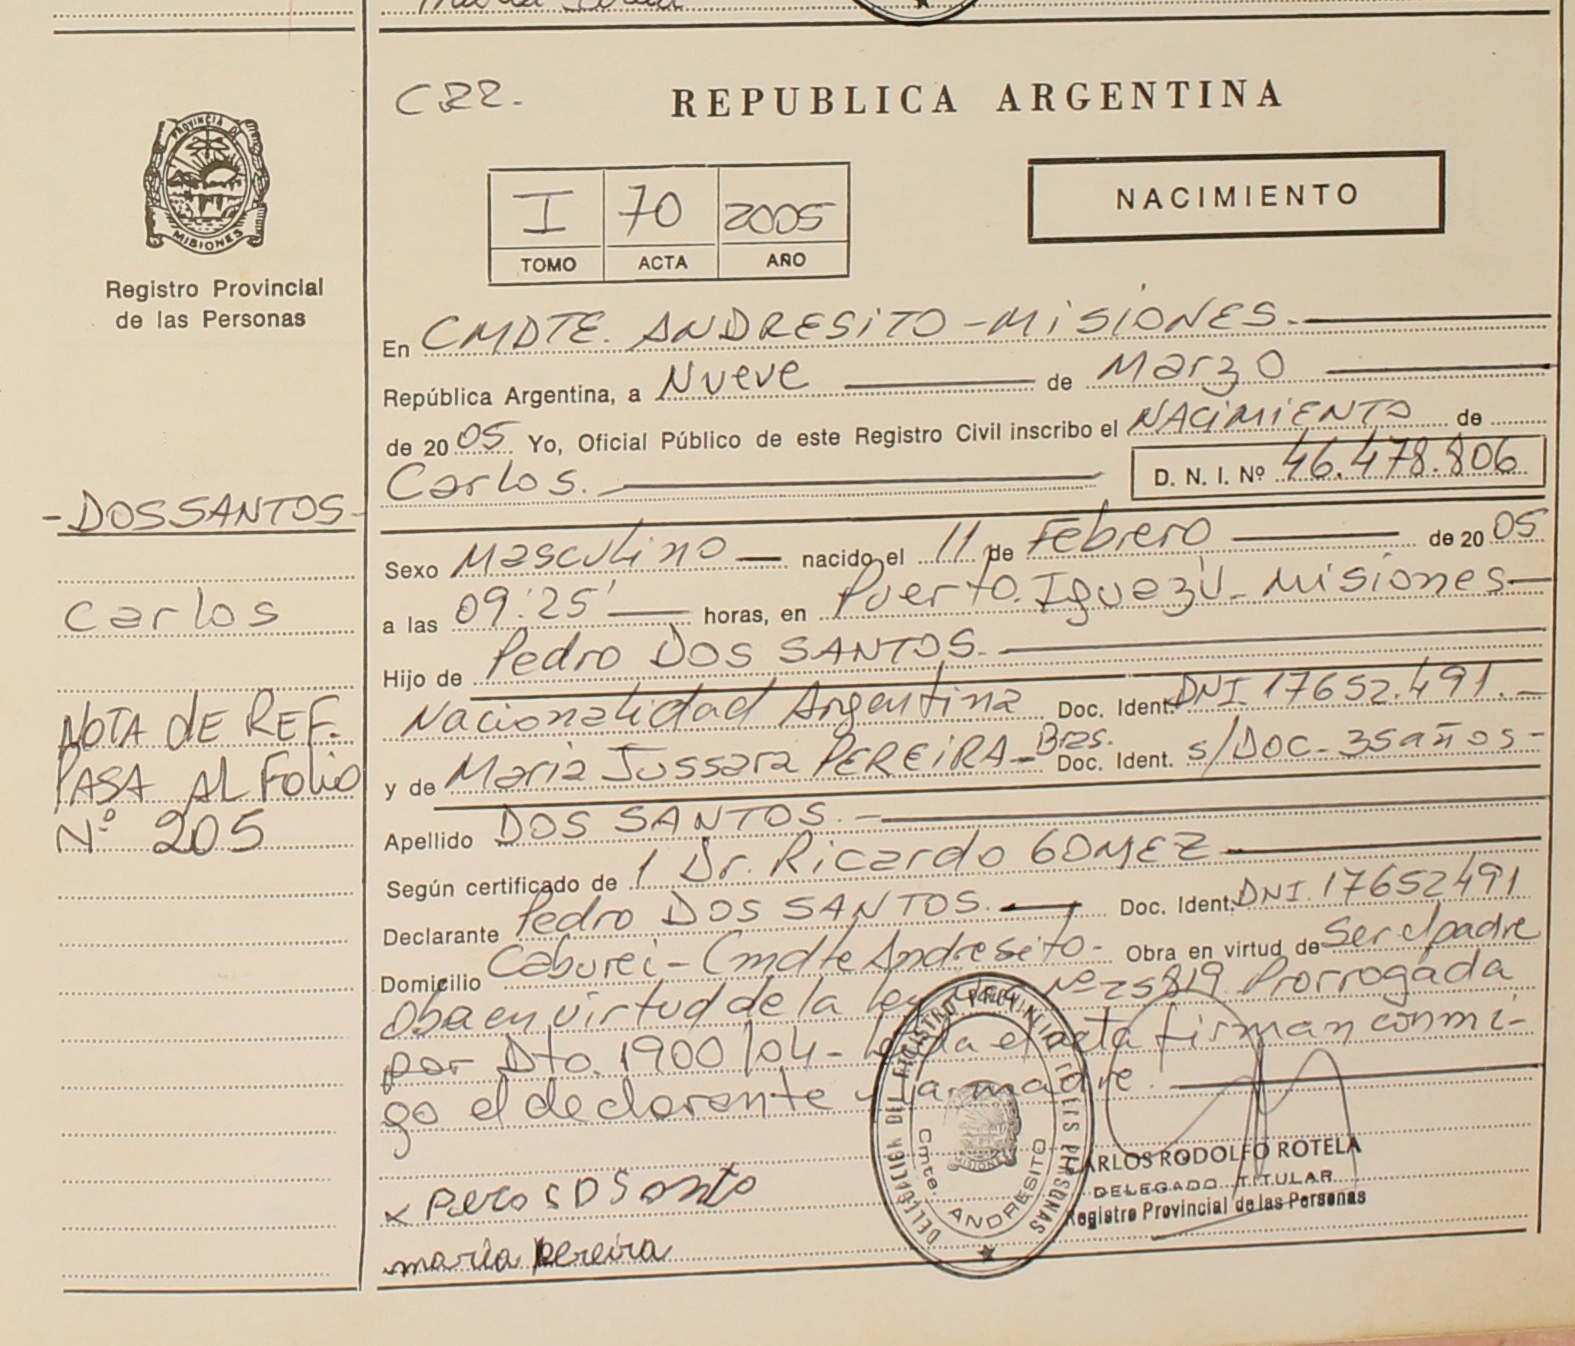 C22.
REPUBLICA ARGENTINA
PROVINCIA DE
MISIONES
Registro Provincial
de las Personas
I 70 2005
TOMO ACTA AÑO
NACIMIENTO
En CMDTE. ANDRESITO - MISIONES.
República Argentina, a Nueve de Marzo
de 2005 Yo, Oficial Público de este Registro Civil inscribo el NACIMIENTO de
Carlos. D. N. I. Nº 46.478.806
- DOS SANTOS -
Carlos
NOTA dE REF.
PASA AL Folio
Nº 205
Sexo Masculino nacido el 11 de Febrero de 2005
a las 09:25' horas, en Puerto. Iguazú - Misiones
Hijo de Pedro DOS SANTOS.
Nacionalidad Argentina Doc. Ident. DNI. 17652.491. -
y de Maria Jussara PEREIRA - Bras. Doc. Ident. s/DOC - 35 años -
Apellido DOS SANTOS. -
Según certificado de 1 Dr. Ricardo GOMEZ
Declarante Pedro DOS SANTOS. Doc. Ident. DNI. 17652491
Domicilio Caburei - Cmdte Andresito - Obra en virtud de Ser el padre
Oba en virtud de la Ley Nº 25819 Prorrogada
por Dto. 1900/04 - leida el acta firman conmi-
go el declarante y la madre.
maria pereira
DELEGACION DEL REGISTRO PROVINCIAL DE LAS PERSONAS
Cmte. ANDRESITO
CARLOS RODOLFO ROTELA
DELEGADO TITULAR
Registro Provincial de las Personas